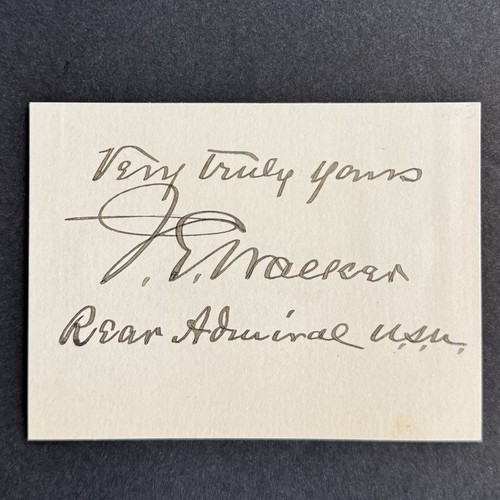 Very truly yours
J. G. Walker
Rear Admiral U.S.N.